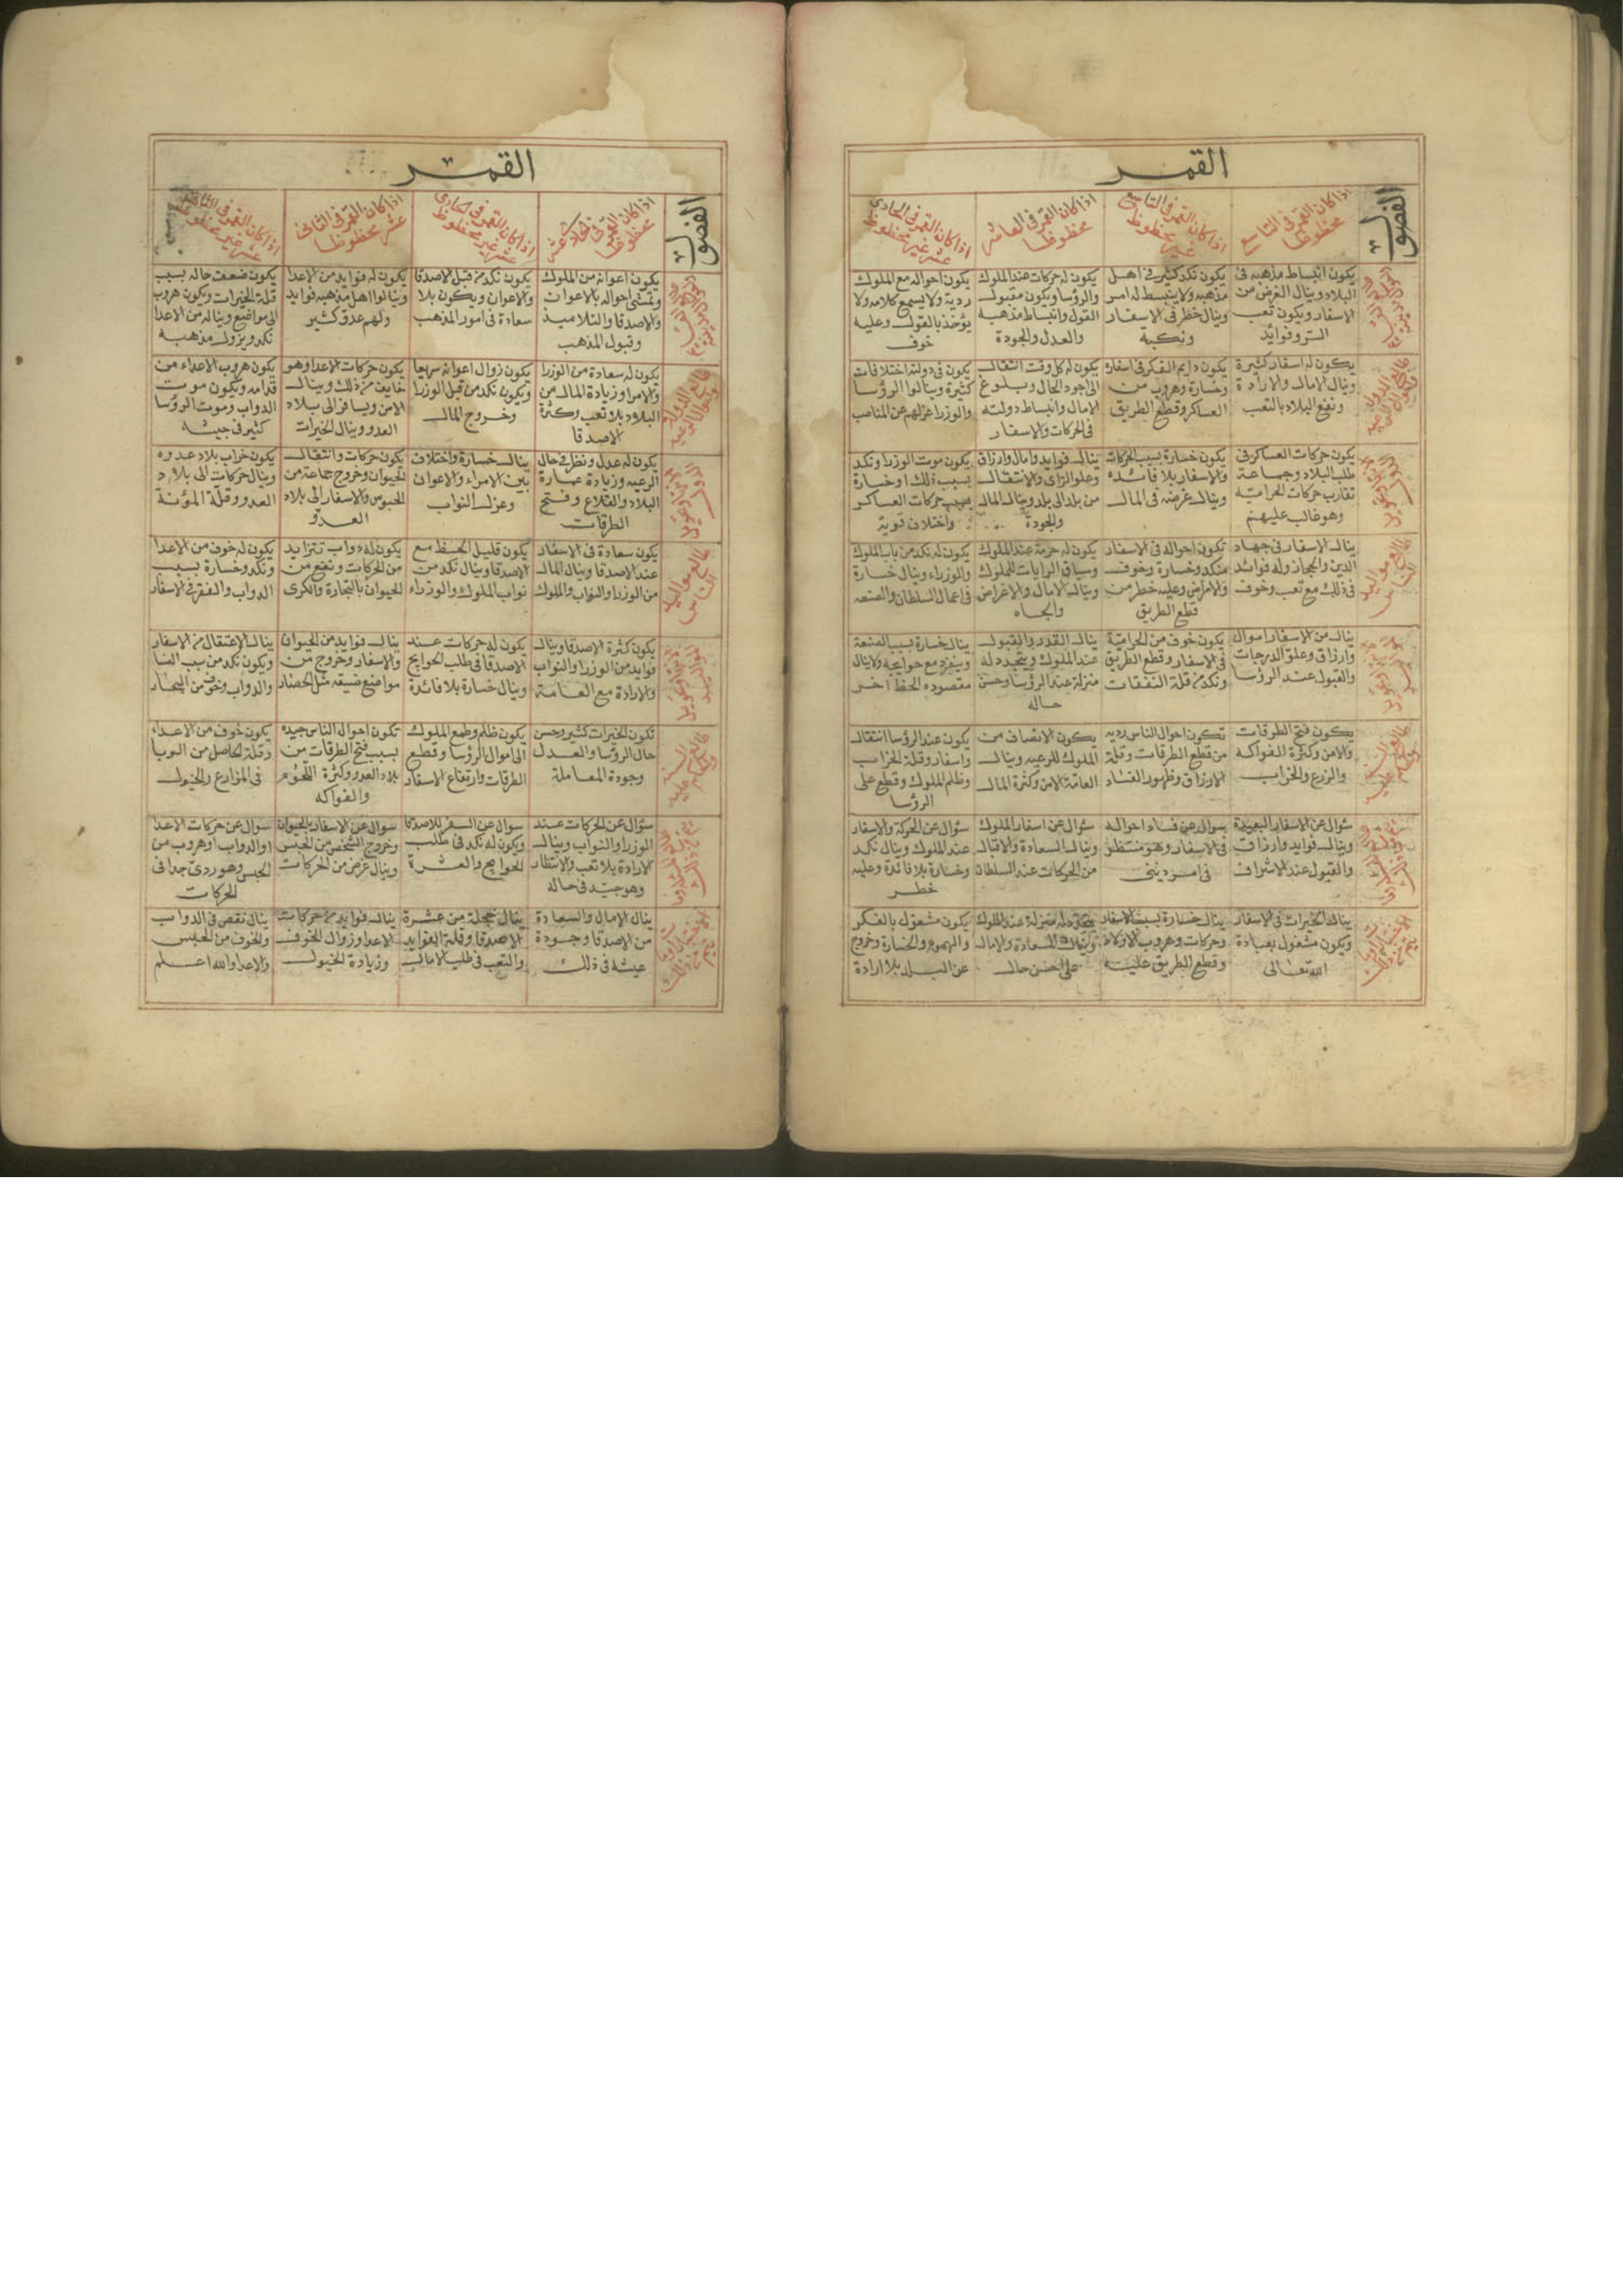 القمر
الفصول
اذا كان القمر فى التاسع
محظوظا
اذا كان القمر فى التاسع
غير محظوظ
اذا كان القمر فى العاشر
محظوظا
اذا كان القمر فى الحادى
عشر غير محظوظ
يكون انبساط مذهبه فى
البلاد وينال الغرض من
الاسفار ويكون تعب
السر وفوائد
يكون نكد كثير فى اهل
مذهبه ولا ينبسط له امر
وينال خطر فى الاسفار
ونكبة
يكون له حركات عند الملوك
والرؤسا ويكون مقبول
القول وانبساط مذهبه
والعدل والجودة
يكون احواله مع الملوك
ردية ولا يسمع كلامه ولا
يؤخذ بالقول وعليه
خوف
يكون له اسفار كثيرة
وينال الامال والارادة
ونفع البلاد بالتعب
يكون دايم الفكر فى اسفاره
وخسارة وهروب من
العساكر وقطع الطريق
يكون له كل وقت انتقال
الى اجود الحال وبلوغ
الامال وانبساط دولته
فى الحركات والاسفار
يكون فى دولته اختلافات
كثيرة وينالوا الرؤسا
والوزرا عزلهم عن المناصب
يكون حركات العساكر فى
طلب البلاد وجماعة
تقارب حركات الحرامية
وهو غالب عليهم
يكون خسارة بسبب الحركات
والاسفار بلا فائده
وينال غرضه فى المال
ينال فوايد وامال وارزاق
وعلو الراى والانتقال
من بلد الى بلد وينال المال
والجودة
يكون موت الوزرا ونكد
بسبب ذلك او خسارة
بسبب حركات العساكر
واختلاف قوية
ينال الاسفار فى جهاد
الدين والحجاز وله فوائد
فى ذلك مع تعب وخوف
تكون احواله فى الاسفار
منكد وخسارة وخوف
والامراض وعليه خطر من
قطع الطريق
يكون له حرمة عند الملوك
وسياق الرايات للملوك
وينال الامال والاغراض
والجاه
يكون له نكد من باب الملوك
والوزراء وينال خسارة
فى اعمال السلطان والصنعه
ينال من الاسفار اموال
وارزاق وعلو الدرجات
والقبول عند الرؤسا
يكون خوف من الحرامية
فى الاسفار وقطع الطريق
ونكد من قلة النفقات
ينال القدر والقبول
عند الملوك ويتجدد له
منزلة عند الرؤسا وحسن
حاله
ينال خسارة بسبب الصنعة
وينفرد مع حوايجه ولا ينال
مقصوده لحظ اخر
يكون فتح الطرقات
والامن وكثرة الفواكه
والزرع والخراب
تكون احوال الناس رديه
من قطع الطرقات وقلة
الارزاق وظهور الفساد
يكون الانصاف من
الملوك للرعيه وينال
العامة الامن وكثرة المال
يكون عند الرؤسا انتقال
واسفار وقلة الخراب
وظلم الملوك وقطع على
الرؤسا
سؤال عن الاسفار البعيدة
وينال فوايد وارزاق
والقبول عند الاشراف
سوال عن فساد احواله
فى الاسفار وهو منتظر
فى امر دينى
سؤال عن اسفار الملوك
وينال السعادة والاقبال
من الحركات عند السلطان
سؤال عن الحركة والاسفار
عند الملوك وينال نكد
وخسارة بلا فائدة وعليه
خطر
ينال الخيرات فى الاسفار
ويكون مشغول بعبادة
الله تعالى
ينال خسارة بسبب الاسفار
وحركات وهروب الاولاد
وقطع الطريق عليه
له منزلة عند الملوك
وينال السعادة والامال
على احسن حال
يكون مشغول بالفكر
والهموم والخسارة وخروج
عن البلد بلا ارادة
القمر
الفصول
اذا كان القمر فى الحادى عشر
محظوظا
اذا كان القمر فى الحادى
عشر غير محظوظ
اذا كان القمر فى الثانى
عشر محظوظا
اذا كان القمر فى الثانى
عشر غير محظوظ
يكون اعوانه من الملوك
وتمشى احواله بالاعوان
والاصدقا والتلاميذ
وقبول المذهب
يكون نكد من قبل الاصدقا
والاعوان ويكون بلا
سعادة فى امور المذهب
يكون له فوايد من الاعدا
وينالوا اهل مذهبه فوايد
ولهم عدو كثير
يكون ضعف حاله بسبب
قلة الخيرات ويكون هروب
الى مواضع ويناله من الاعدا
نكد ويزول مذهبه
يكون له سعادة من الوزرا
والامرا وزيادة المال من
البلاد بلا تعب وكثرة
الاصدقا
يكون زوال اعوانه سريعا
ويكون نكد من قبل الوزرا
وخروج المال
يكون حركات الاعدا وهو
خايف من ذلك وينال
الامن ويسافر الى بلاد
العدو وينال الخيرات
يكون هروب الاعداء من
قدامه ويكون موت
الدواب وموت الرؤسا
كثير فى جيشه
يكون له عدل ونظر فى حال
الرعيه وزيادة عمارة
البلاد والقلاع وفتح
الطرقات
ينال خسارة واختلاف
بين الامراء والاعوان
وعزل النواب
يكون حركات وانتقال
الحيوان وخروج جماعة من
الحبوس والاسفار الى بلاد
العدو
يكون خراب بلاد عدوه
وينال حركات الى بلاد
العدو وقلة المؤنة
يكون سعادة فى الاسفار
عند الاصدقا وينال المال
من الوزرا والنواب والملوك
يكون قليل الحظ مع
الاصدقا وينال نكد من
نواب الملوك والوزراء
يكون له دواب تتزايد
من الحركات ونفع من
الحيوان بالتجارة والكرى
يكون له خوف من الاعدا
ونكد وخسارة بسبب
الدواب والفقر فى الاسفار
يكون كثرة الاصدقا وينال
فوايد من الوزرا والنواب
والارادة مع العامة
يكون له حركات عند
الاصدقا فى طلب الحوايج
وينال خسارة بلا فائدة
ينال فوايد من الحيوان
والاسفار وخروج من
مواضع ضيقه مثل الحصار
ينال الاعتقال من الاسفار
ويكون نكد من سبب النسا
والدواب وخوف من البحار
تكون الخيرات كثير وحسن
حال الرؤسا والعدل
وجودة المعاملة
يكون ظلم وطمع الملوك
الى اموال الرؤسا وقطع
الطرقات وارتفاع الاسفار
تكون احوال الناس جيده
بسبب فتح الطرقات من
بلاد العدو وكثرة اللحوم
والفواكه
يكون خوف من الاعداء
وقلة الحاصل من الوبا
فى المزارع والخيول
سئوال عن الحركات عند
الوزرا والنواب وينال
الارادة بلا تعب والانتظار
وهو جيد فى حاله
سوال عن السفر للاصدقا
ويكون له نكد فى طلب
الحوايج والعشرة
سوال عن الاسفار بالحيوان
وخروج الشخص من الحبس
وينال غرض من الحركات
سوال عن حركات الاعدا
او الدواب او هروب من
الحبس وهو ردى جدا فى
الحركات
ينال الامال والسعادة
من الاصدقا وجودة
عيشه فى ذلك
ينال خجلة من عشرة
الاصدقا وقلة الفوايد
والتعب فى طلب الامال
ينال فوايد من حركات
الاعدا وزوال الخوف
وزيادة الخيول
ينال نقص فى الدواب
والخوف من الحبس
والاعدا والله اعلم